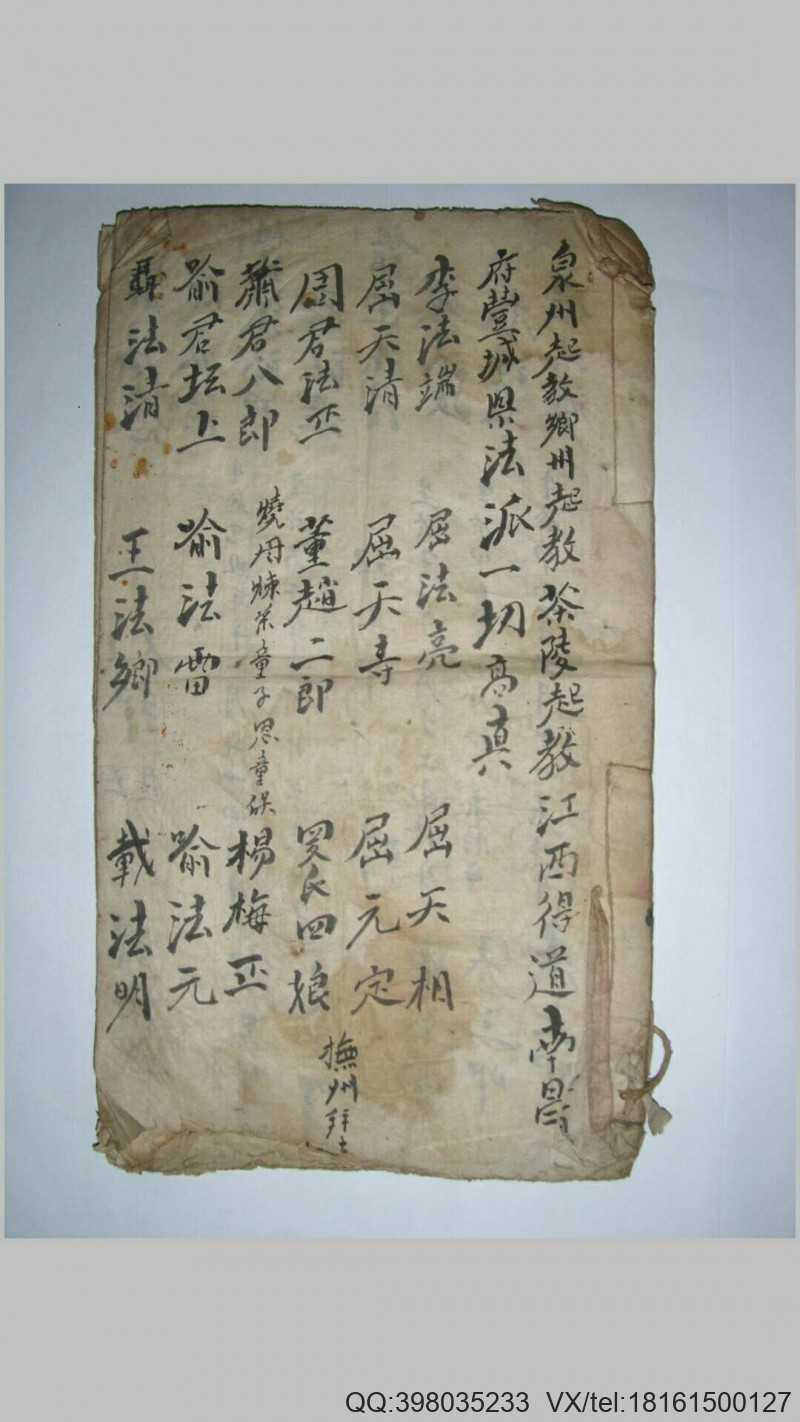 泉州起教鄉州起教茶陵起教江西得道南昌
府豐城県法派一切高真
李法端 屈法亮 屈天相
屈天清 屈天寿 屈元定
周君法正 董趙二郎 四娘
撫州
蕭君八郎 童子 童 楊梅正
喻君坛上 喻法雷 喻法元
聶法清 王法鄉 載法明
QQ:398035233 VX/tel:18161500127